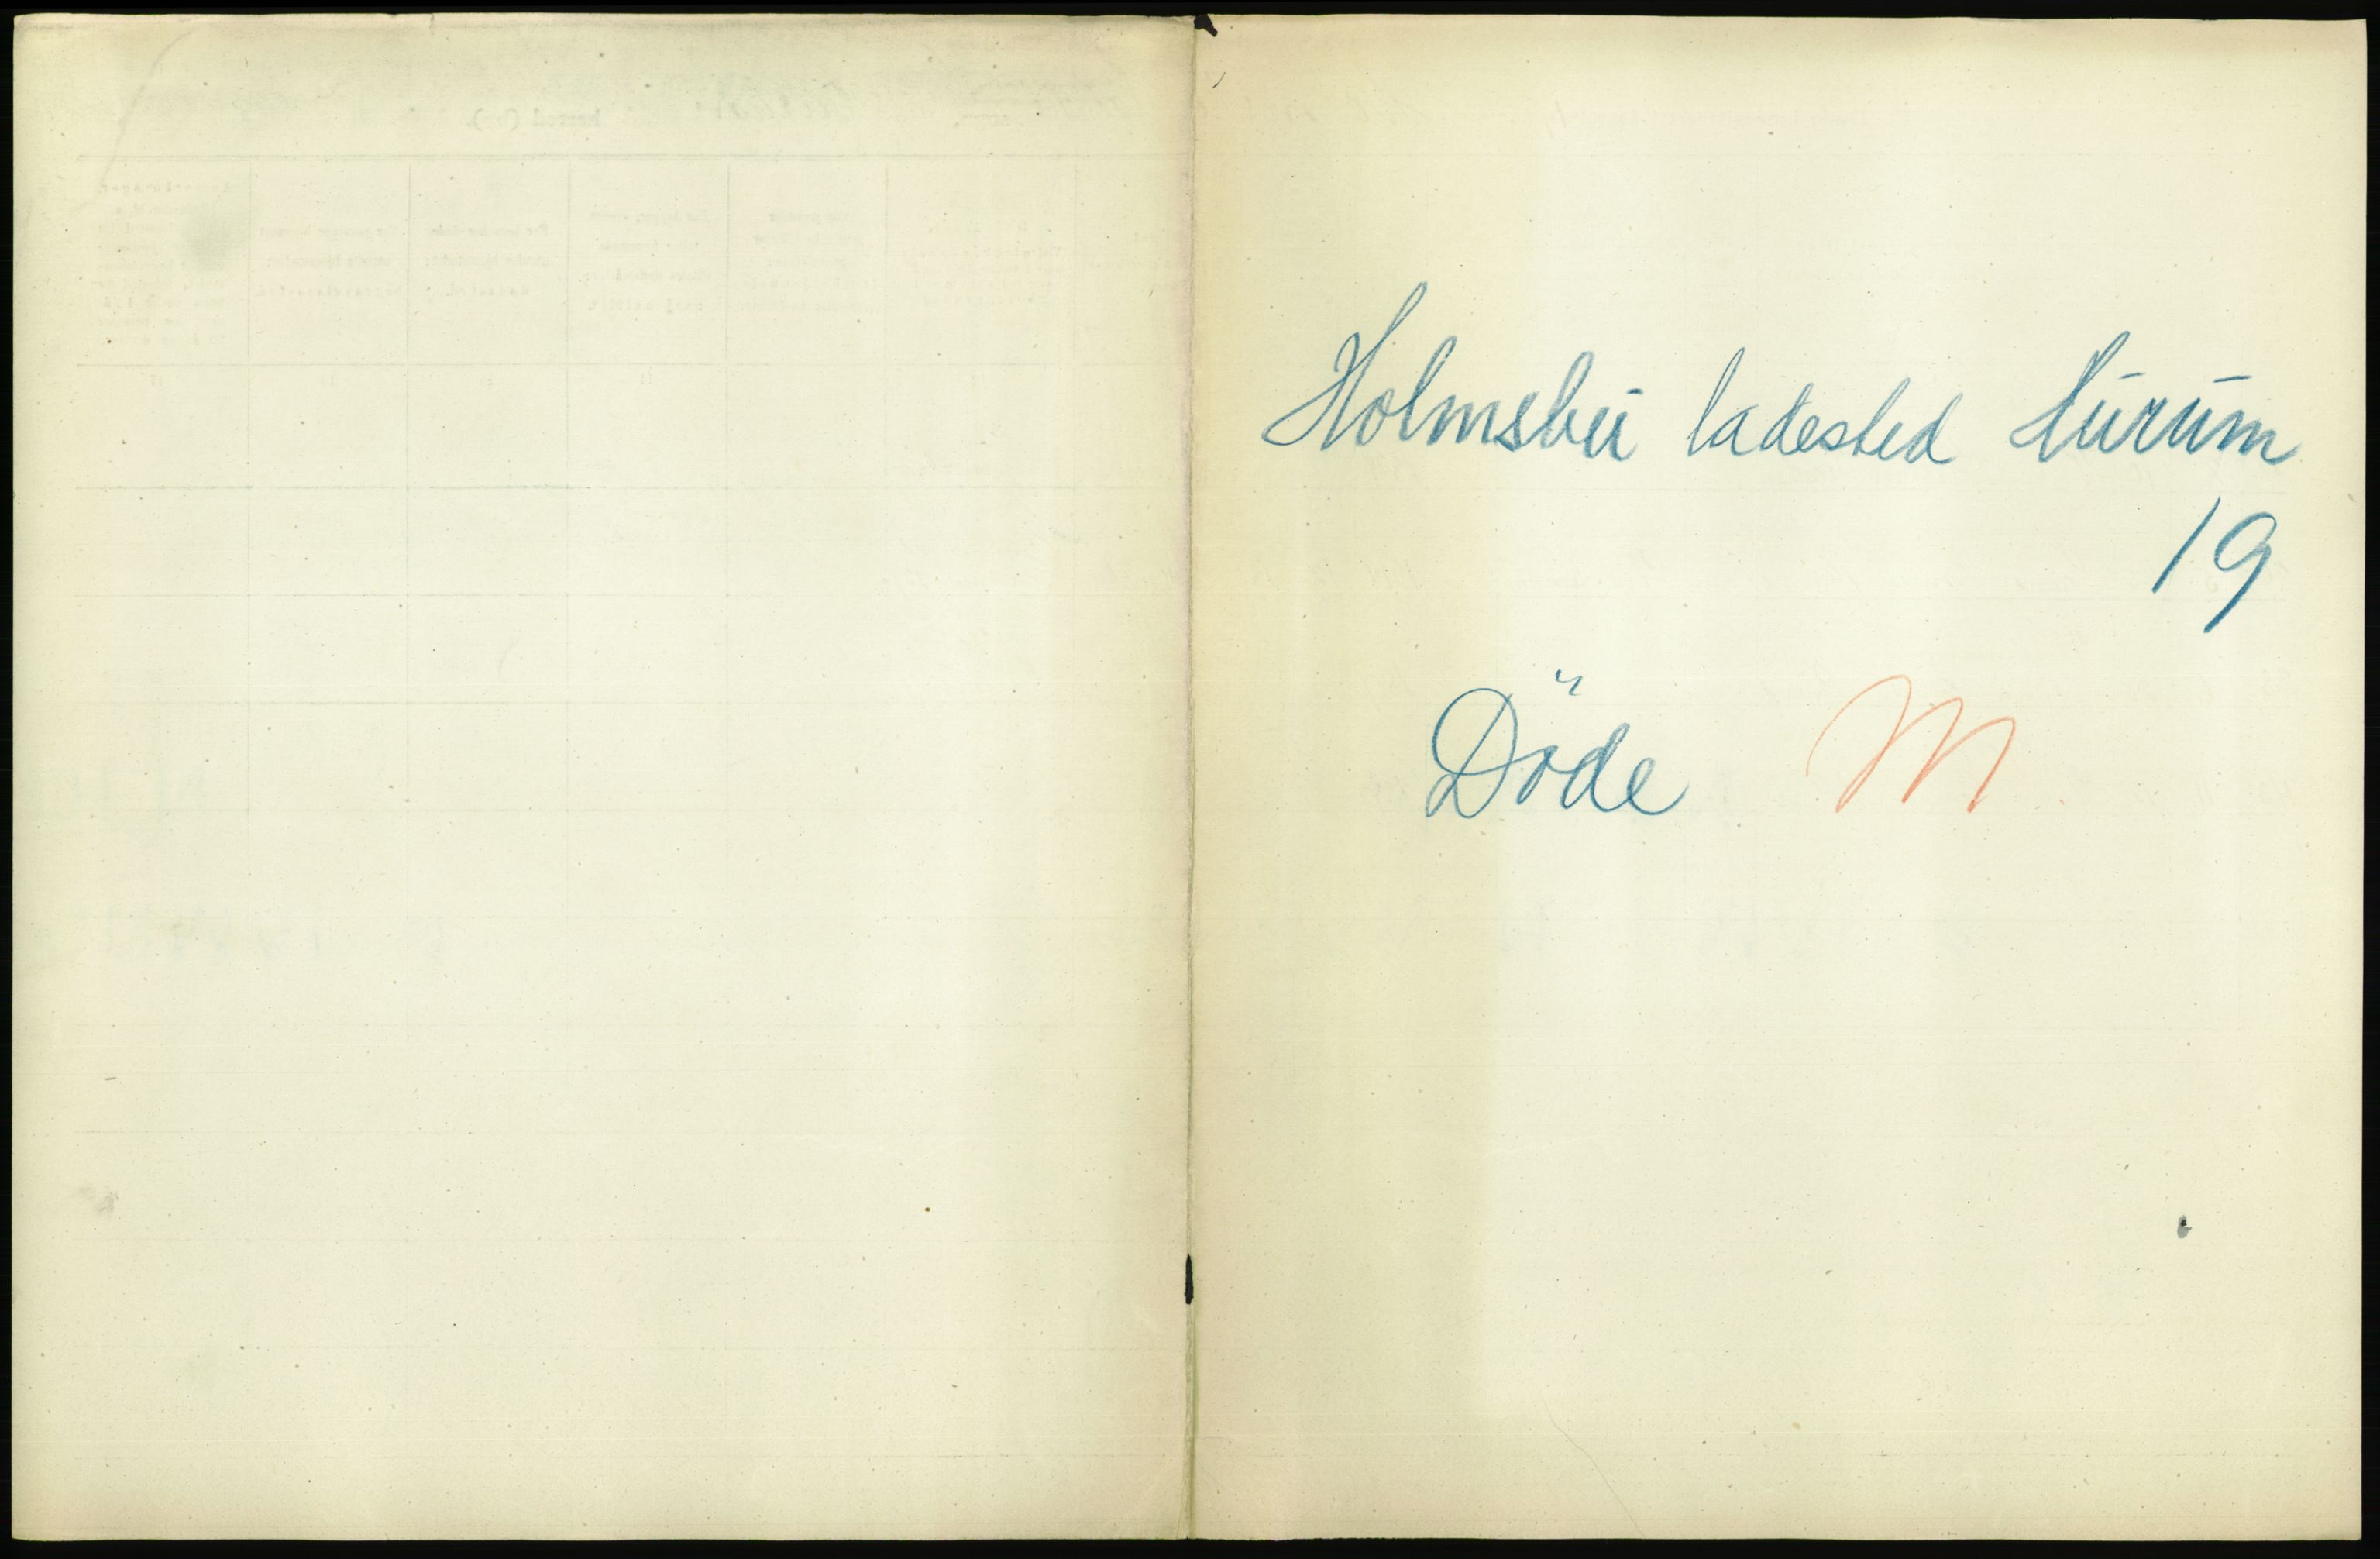 Holmsbu ladested Hurum
19
Döde M